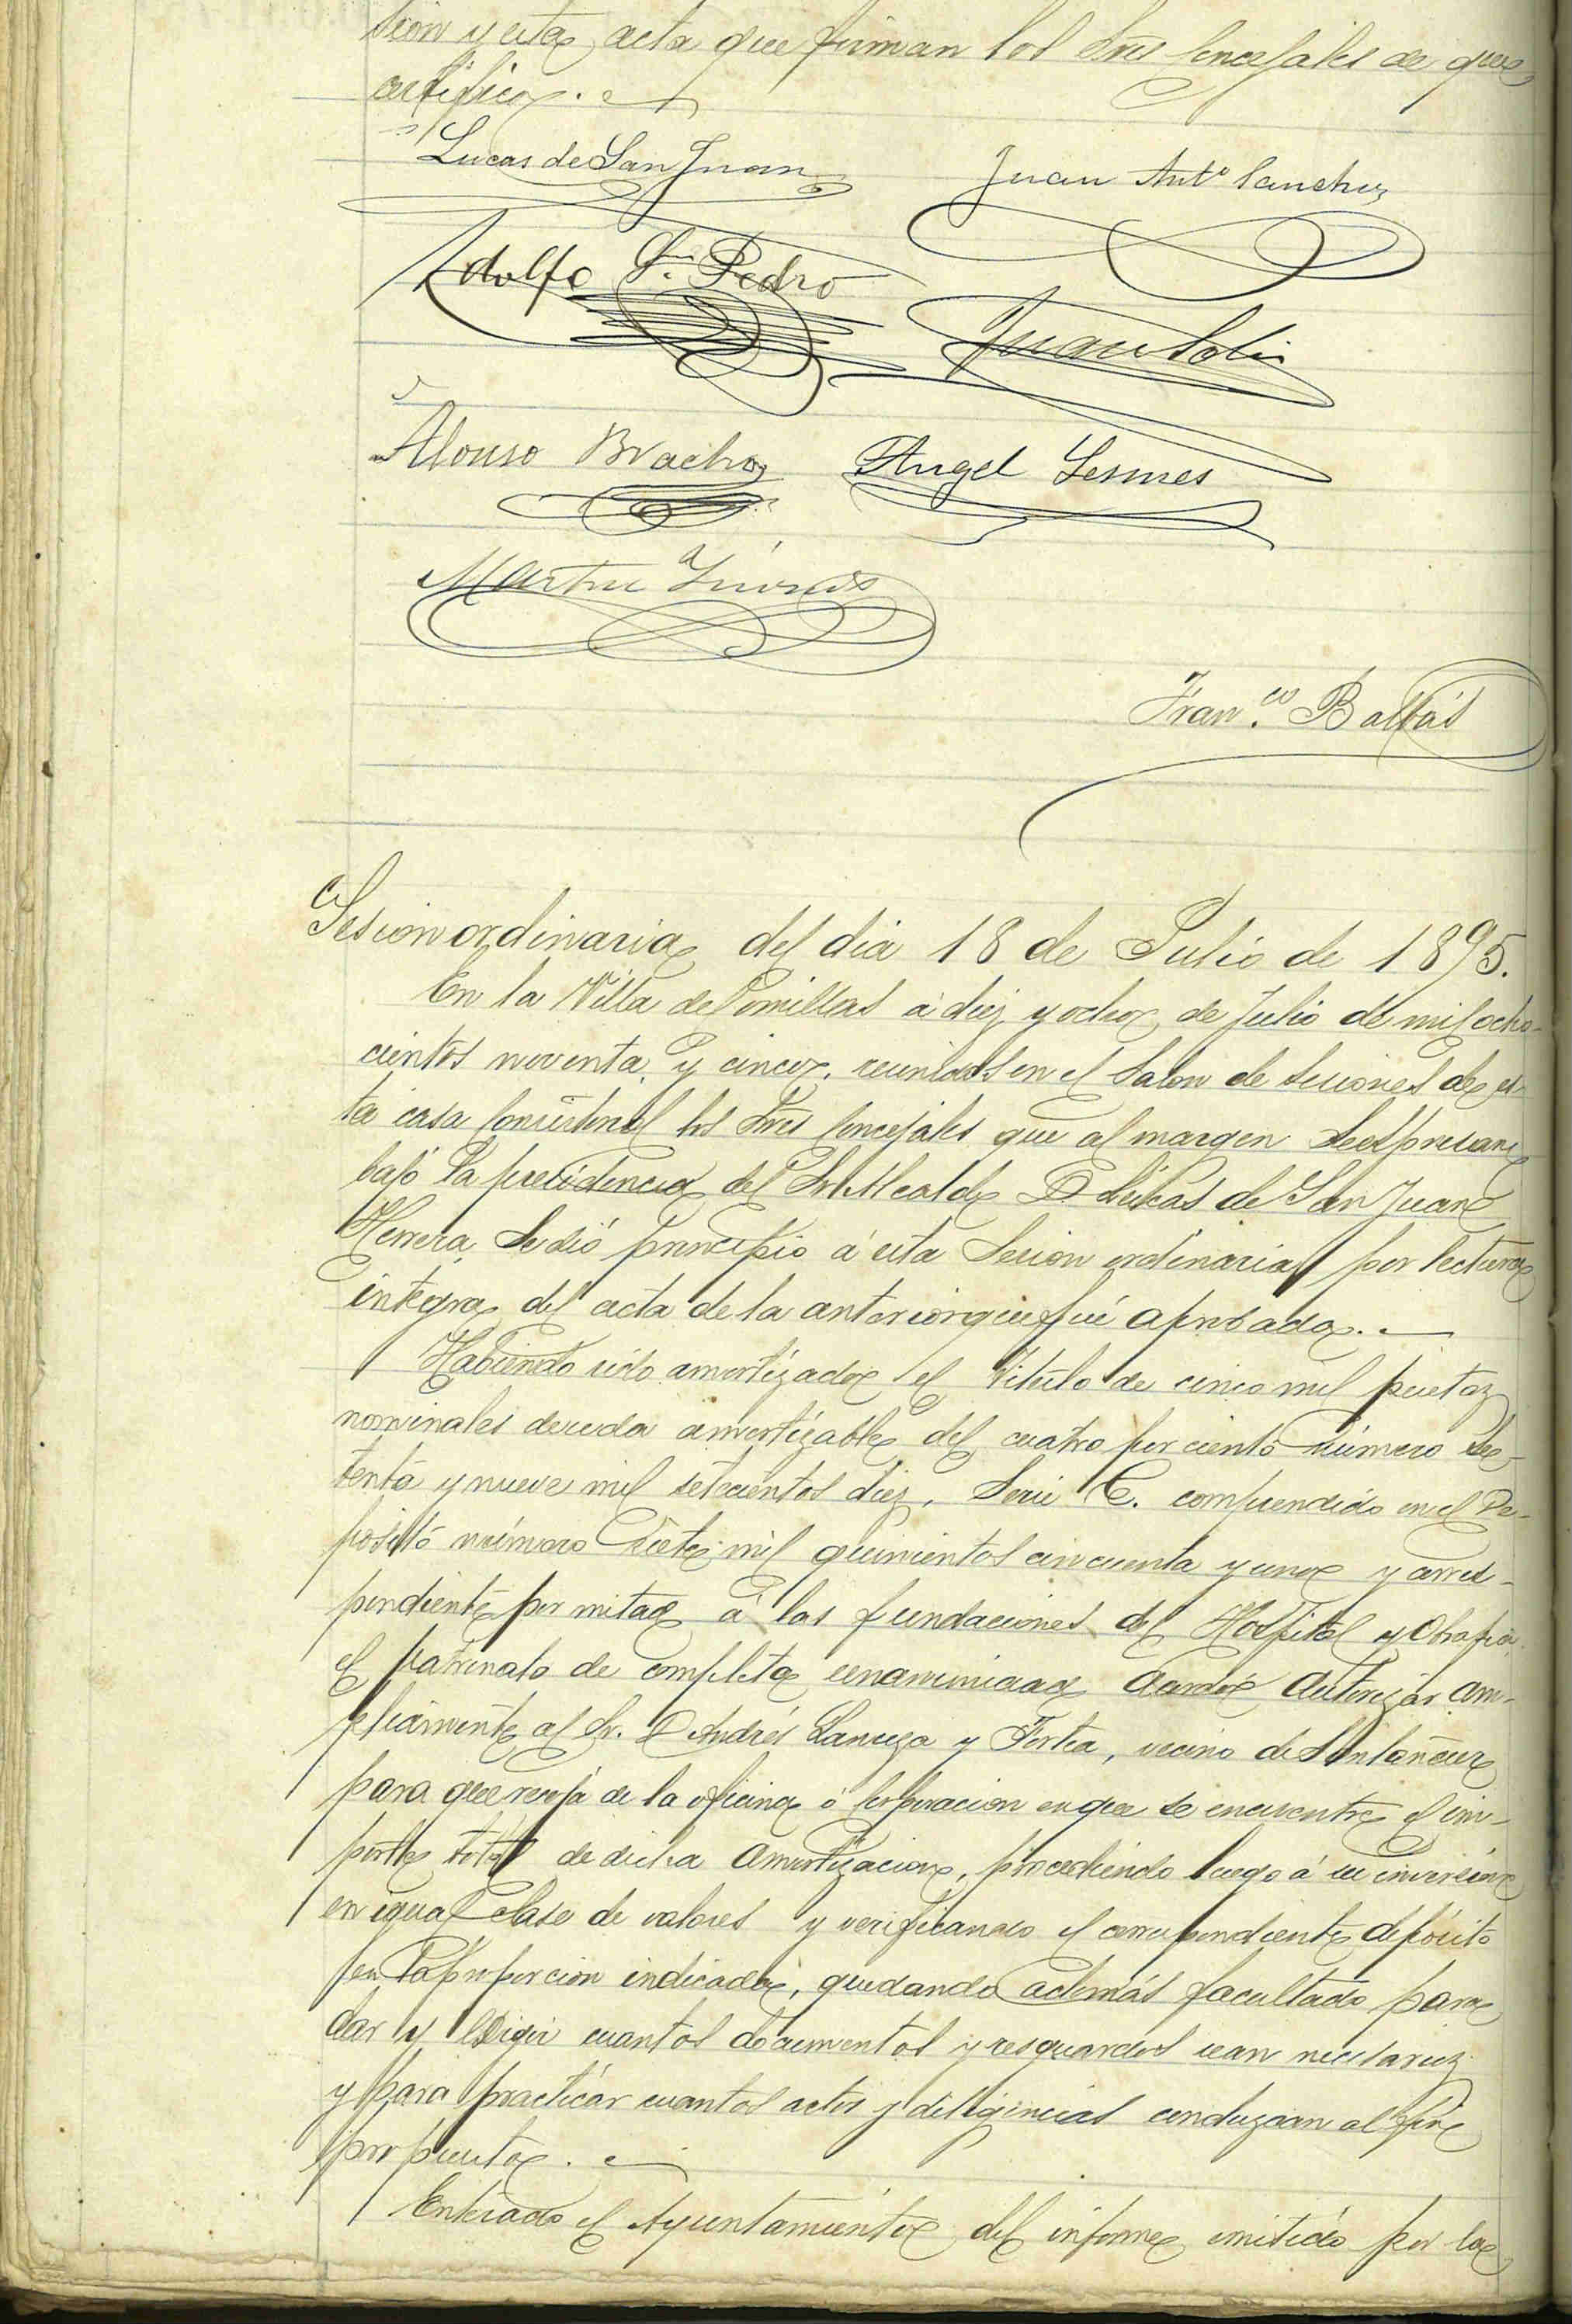 sion y esta acta que firman los Sres Concejales de que
certifico.
Lucas de San Juan
Juan Antº Sanchez
Adolfo Sn. Pedro
Juan Solis
Alonso Bracho
Angel Lesmes
Martin
Fran.co Baltás
Sesion ordinaria del dia 18 de Julio de 1895.
En la Villa de Comillas á diez y ocho de Julio de mil ocho-
cientos noventa y cinco, reunidos en el Salon de Sesiones de es-
ta casa Consistorial los Sres Concejales que al margen se espresan
bajo la presidencia del Sr. Alcalde D Lucas de San Juan
Herrera, se dió principio á esta Sesion ordinaria por lectura
integra del acta de la anterior que fué aprobada.
Habiendo sido amortizado el Título de cinco mil pesetas
nominales deuda amortizable del cuatro por ciento número se-
tenta y nueve mil setecientos diez, Serie C. comprendido en el De-
posito número siete mil quinientos cincuenta y uno y corres-
pondiente por mitad á las fundaciones del Hospital y Obrapia
el patronato de completa unanimidad acordó autorizar am-
pliamente al Sr. D Andrés Lanuza y Fortea, vecino de Santander
para que recoja de la oficina ó corporacion en que se encuentre el im-
porte total de dicha amortizacion, procediendo luego á su inversion
en igual clase de valores y verificando el correspondiente depósito
en la proporcion indicada, quedando además facultado para
dar y exigir cuantos documentos y resguardos sean necesarios
y para practicar cuantos actos y diligencias conduzcan al fin
propuesto.
Enterado el Ayuntamiento del informe emitido por la